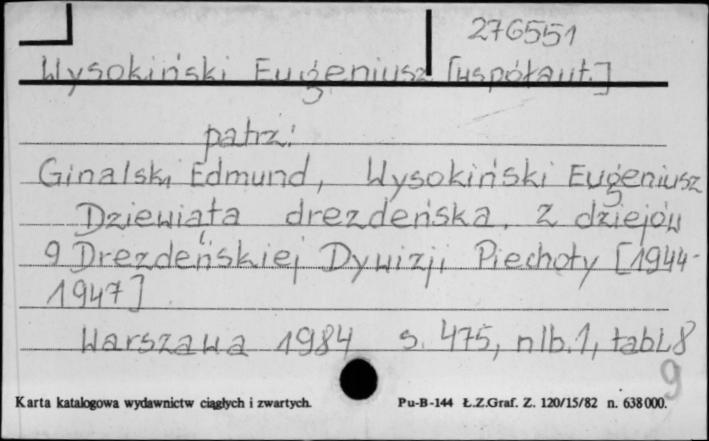 276551
Wysokiński Eugeniusz [współaut.]
patrz:
Ginalski Edmund, Wysokiński Eugeniusz
Dziewiąta drezdeńska. Z dziejów
9 Drezdeńskiej Dywizji Piechoty [1944-
1947]
Warszawa 1984 s. 475, nlb. 1, tabl. 8
9
Karta katalogowa wydawnictw ciągłych i zwartych. Pu-B-144 Ł.Z.Graf. Z. 120/15/82 n. 638 000.